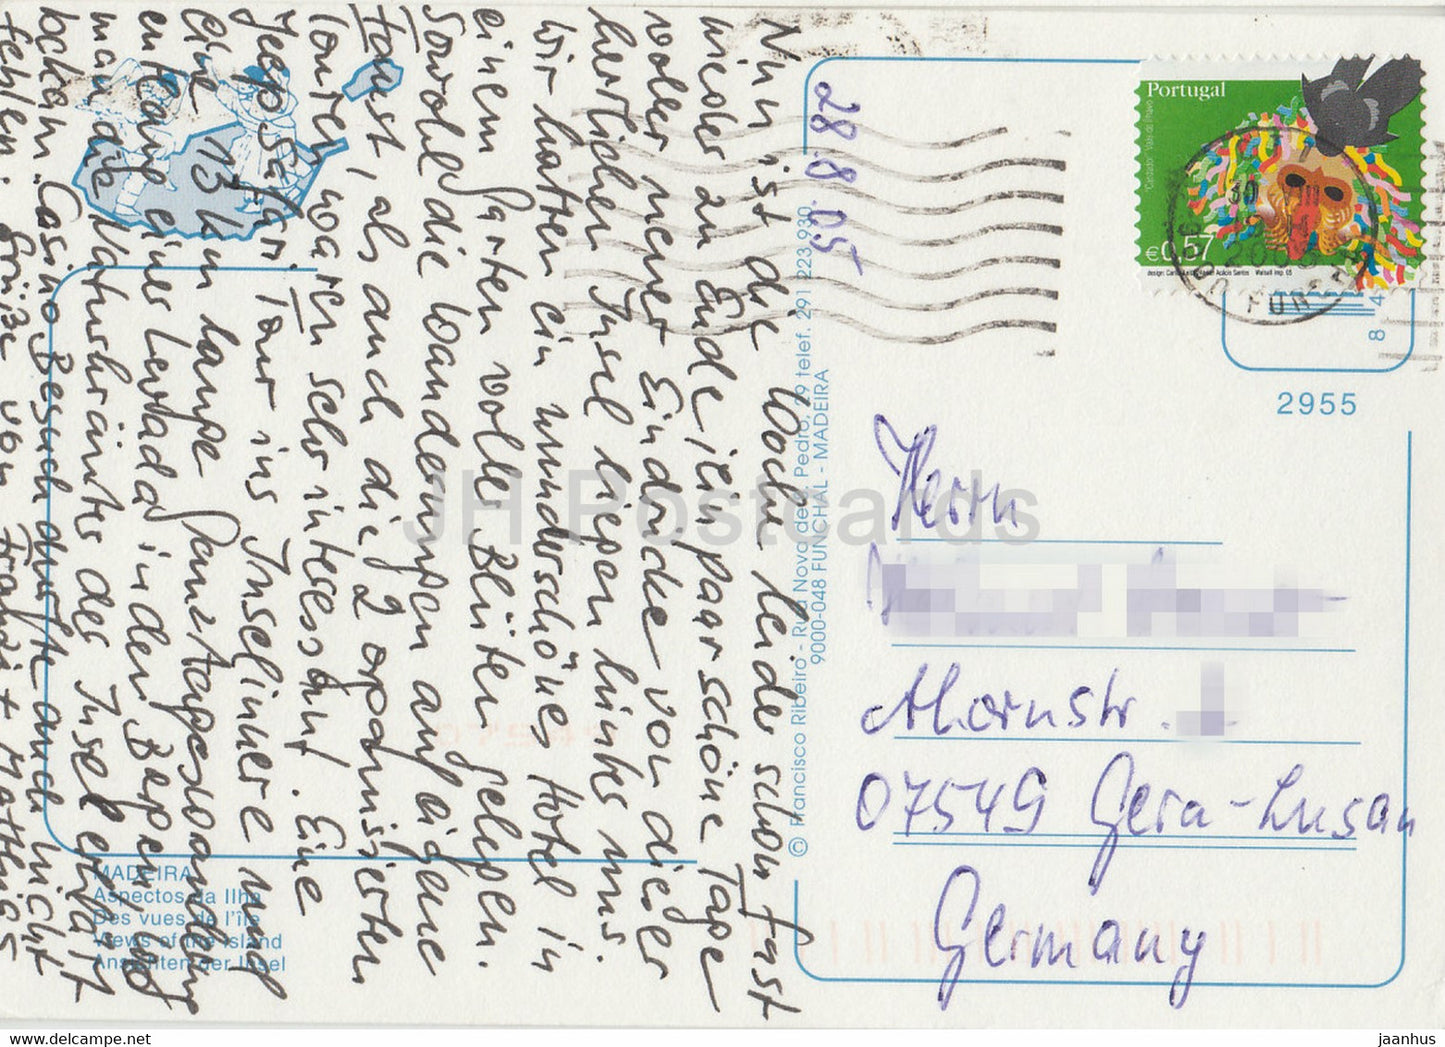 28.8.05
Nun ist die Woche leider schon fast
wieder zu Ende, ein paar schöne Tage
voller neuer Eindrücke von dieser
herrlichen Insel liegen hinter uns.
Wir hatten ein wunderschönes Hotel in
einem Garten voller Blüten gelegen.
Sowohl die Wanderungen auf eigene
Faust, als auch die 2 organisierten
Touren waren sehr interessant. Eine
Jeepsafari Tour ins Inselinnere und
eine 13 km lange Ganztageswanderung
entlang einer Levada in den Bergen, wo
man die Naturschönheiten der Insel erhält
Casino-Besuch durfte auch nicht
fehlen. Grüße von Traudi + Matthias
MADEIRA
Aspectos da Ilha
Des vues de l'île
Views of the Island
Ansichten der Insel
© Francisco Ribeiro - Rua Nova de Pedro, 29 telef. 291 223 930
9000-048 FUNCHAL - MADEIRA
Portugal
€0,57
2955
Herrn
Ahornstr.
07549 Gera-Lusan
Germany
JH Postcards
jaanhus